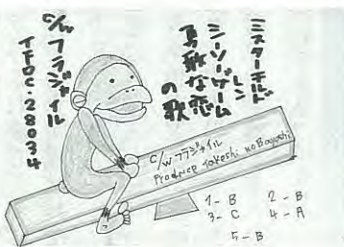 ミスターチルド
レン
シーソーゲーム
勇敢な恋
の歌
C/Wフラジャイル
TFDC.28034
C/W フラジャイル
Producep Takeshi koBayashi
1- B 2 - B
3- C 4- A
5- B